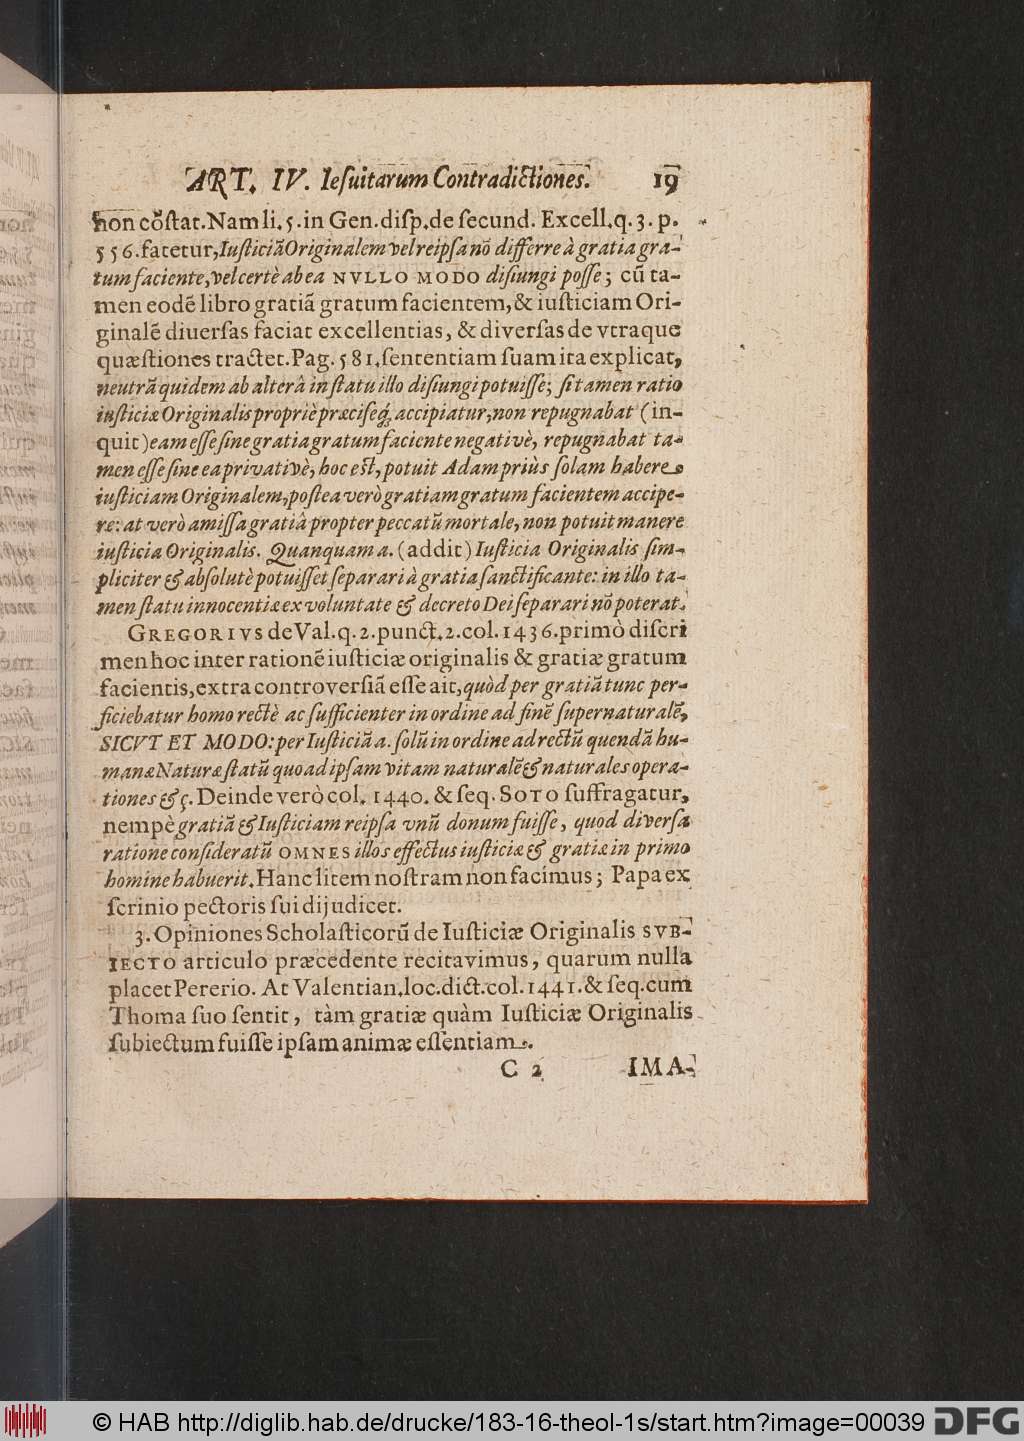 ART. IV. Ieſuitarum Contradictiones. 19
non cõſtat. Nam li. 5. in Gen. diſp. de ſecund. Excell. q. 3. p.
556. fatetur, Iuſticiã Originalem vel reipſa nõ differre à gratia gra-
tum faciente, vel certè ab ea NVLLO MODO diſiungi poſſe; cũ ta-
men eodẽ libro gratiã gratum facientem, & iuſticiam Ori-
ginalẽ diuerſas faciat excellentias, & diverſas de vtraque
quæſtiones tractet. Pag. 581. ſententiam ſuam ita explicat,
neutrã quidem ab alterâ in ſtatu illo diſiungi potuiſſe; ſi tamen ratio
iuſticiæ Originalis propriè præciſeq́; accipiatur, non repugnabat (in-
quit) eam eſſe ſine gratia gratum faciente negativè, repugnabat ta-
men eſſe ſine ea privativè, hoc eſt, potuit Adam priùs ſolam habere
iuſticiam Originalem, poſtea verò gratiam gratum facientem accipe-
re: at verò amiſſa gratiâ propter peccatũ mortale, non potuit manere
iuſticia Originalis. Quanquam a. (addit) Iuſticia Originalis ſim-
pliciter & abſolutè potuiſſet ſeparari à gratia ſanctificante: in illo ta-
men ſtatu innocentiæ ex voluntate & decreto Dei ſeparari nõ poterat.
GREGORIVS de Val. q. 2. punct. 2. col. 1436. primò diſcri
men hoc inter rationẽ iuſticiæ originalis & gratiæ gratum
facientis, extra controverſiã eſſe ait, quòd per gratiã tunc per-
ficiebatur homo rectè ac ſufficienter in ordine ad finẽ ſupernaturalẽ,
SICVT ET MODO: per Iuſticiã a. ſolũ in ordine ad rectũ quendã hu-
manæ Naturæ ſtatũ quoad ipſam vitam naturalẽ & naturales opera-
tiones &ç. Deinde verò col. 1440. & ſeq. SOTO ſuffragatur,
nempè gratiã & Iuſticiam reipſa vnũ donum fuiſſe, quod diverſa
ratione conſideratũ OMNES illos effectus iuſticiæ & gratiæ in primo
homine habuerit. Hanc litem noſtram non facimus; Papa ex
ſcrinio pectoris ſui dijudicet.
3. Opiniones Scholaſticorũ de Iuſticiæ Originalis SVB-
IECTO articulo præcedente recitavimus, quarum nulla
placet Pererio. At Valentian. loc. dict. col. 1441. & ſeq. cum
Thoma ſuo ſentit, tàm gratiæ quàm Iuſticiæ Originalis
ſubiectum fuiſſe ipſam animæ eſſentiam.
C 2 IMA-
© HAB http://diglib.hab.de/drucke/183-16-theol-1s/start.htm?image=00039 DFG